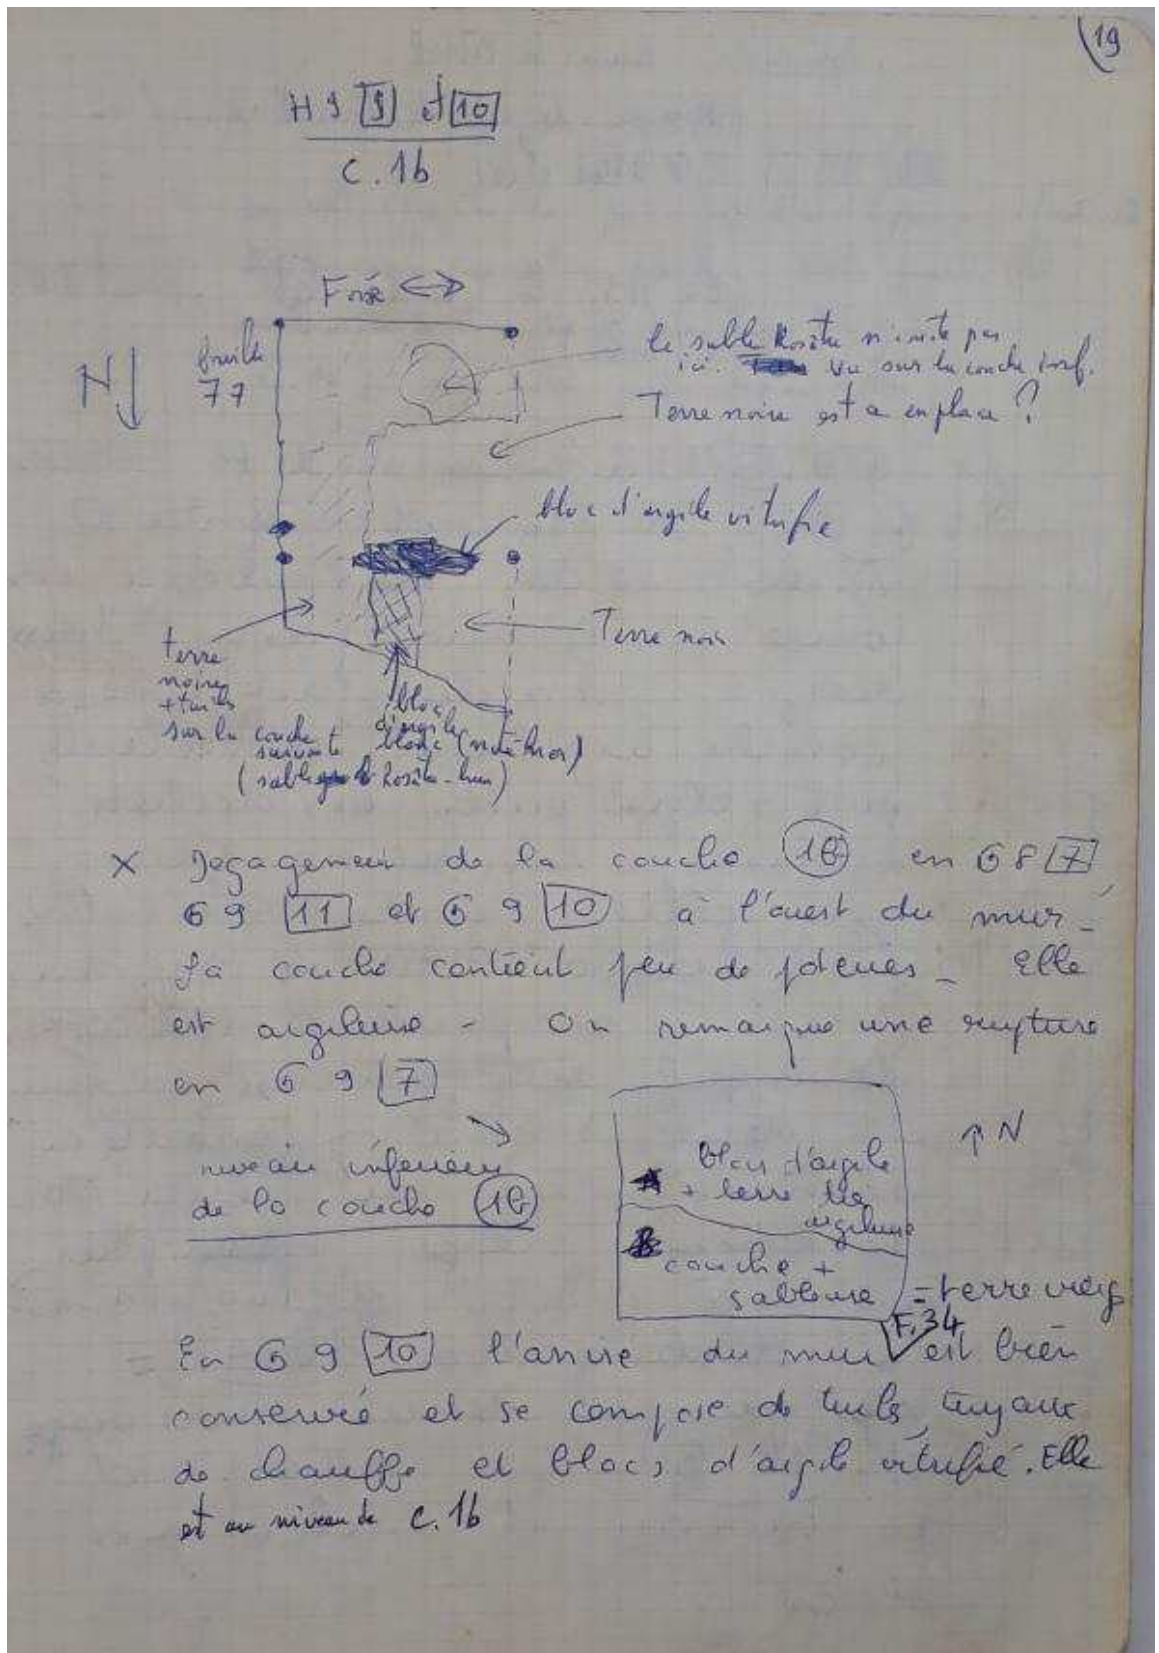 19
H9 [9] et [10]
c. 1b
Fossé
N
fouille
77
le sable n'existe pas
ici. vu sur la couche inf.
Terre noire est a en place ?
bloc d'argile vitrifié
Terre noir
terre
noire
+ tuiles
sur la couche
suivante
bloc
d'argile
(sable
X Degagement de la couche (1b) en G8 [7],
G9 [11] et G9 [10] à l'ouest du mur -
La couche contient peu de poteries - Elle
est argileuse - On remarque une rupture
en G9 [7]
niveau inférieur
de la couche (1b)
N
A blocs d'argile
+ terre très
argileuse
B couche +
sableuse = terre vierge
F.34
= En G9 [10] l'arrive du mur est bien
conservé et se compose de tuiles, tuyaux
de chauffe et blocs d'argile vitrifié. Elle
est au niveau de c. 1b